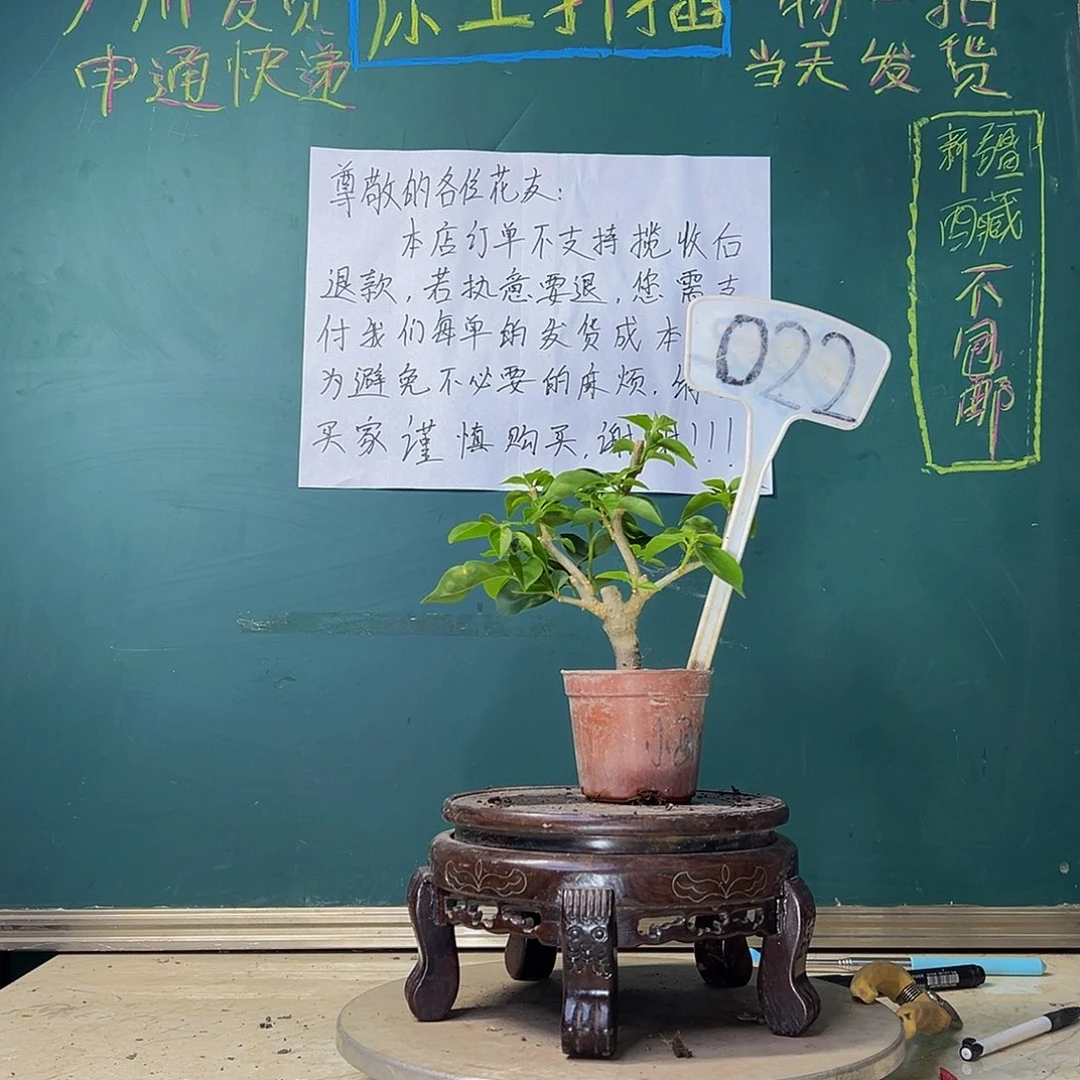 广州发货
原土扦插
物一拍
申通快递
当天发货
新疆
西藏
不包邮
尊敬的各位花友：
本店订单不支持揽收后
退款，若执意要退，您需支
付我们每单的发货成本
为避免不必要的麻烦.
买家谨慎购买，谢谢!!!
022
小